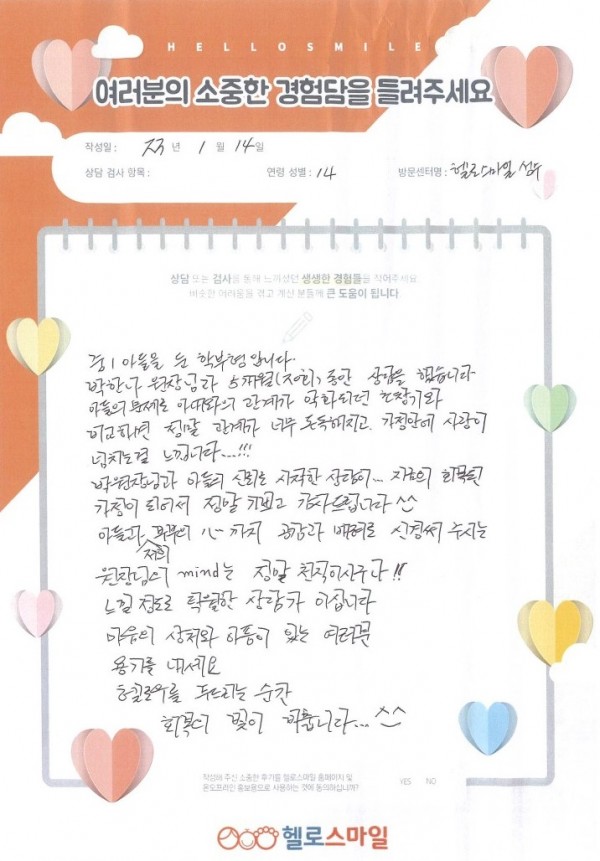 HELLOSMILE
여러분의 소중한 경험담을 들려주세요
작성일 : 23년 1월 14일
상담 검사 항목 : 연령 성별 : 14 방문센터명 : 헬로스마일 성수
상담 또는 검사를 통해 느끼셨던 생생한 경험들을 적어주세요
비슷한 어려움을 겪고 계신 분들께 큰 도움이 됩니다.
중1 아들을 둔 학부형입니다.
박한나 원장님과 5개월(20회)동안 상담을 했습니다
아들의 문제로 아빠와의 관계가 악화되던 한창기와
비교하면 정말 관계가 너무 돈독해지고 가정안에 사랑이
넘치는걸 느낍니다....!!!
박원장님과 아들의 신뢰로 시작한 상담이... 지금의 회복된
가정이 되어서 정말 기쁘고 감사드립니다^^
아들과 저희 부부의 心까지 공감과 배려로 신경써 주시는
원장님의 mind는 정말 천직이시구나!!
느낄 정도로 탁월한 상담가 이십니다
마음의 상처와 아픔이 있는 여러분
용기를 내세요
헬로우를 두드리는 순간
회복의 빛이 비춥니다...^^
작성해 주신 소중한 후기를 헬로스마일 홈페이지 및
온오프라인 홍보용으로 사용하는 것에 동의하십니까? YES NO
헬로스마일